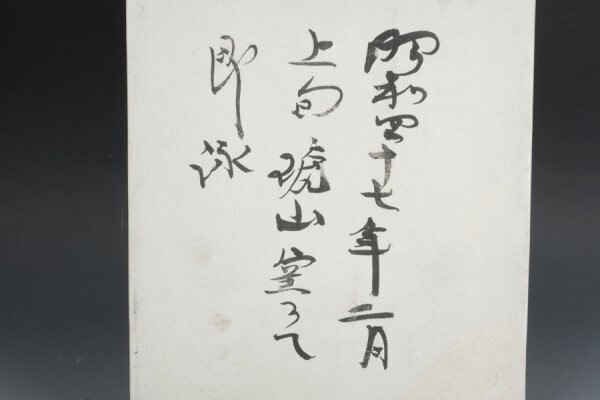 昭和四十七年二月
上旬琥山窯にて
即詠